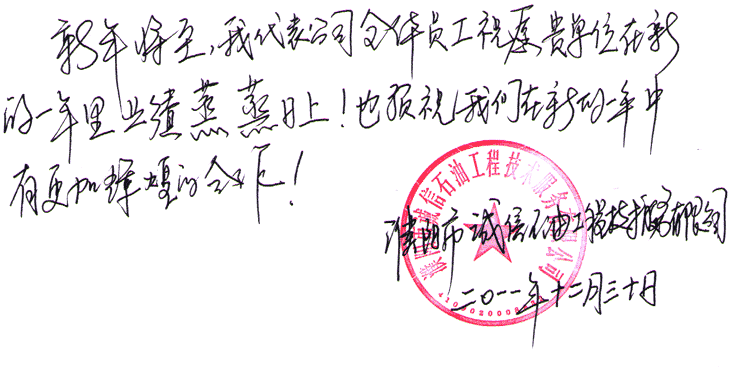 新年将至,我代表公司全体员工祝愿贵单位在新
的一年里业绩蒸蒸日上!也预祝我们在新的一年中
有更加辉煌的合作!
濮阳市诚信石油工程技术服务有限公司
濮阳市诚信石油工程技术服务有限公司
二〇一一年十二月三十日